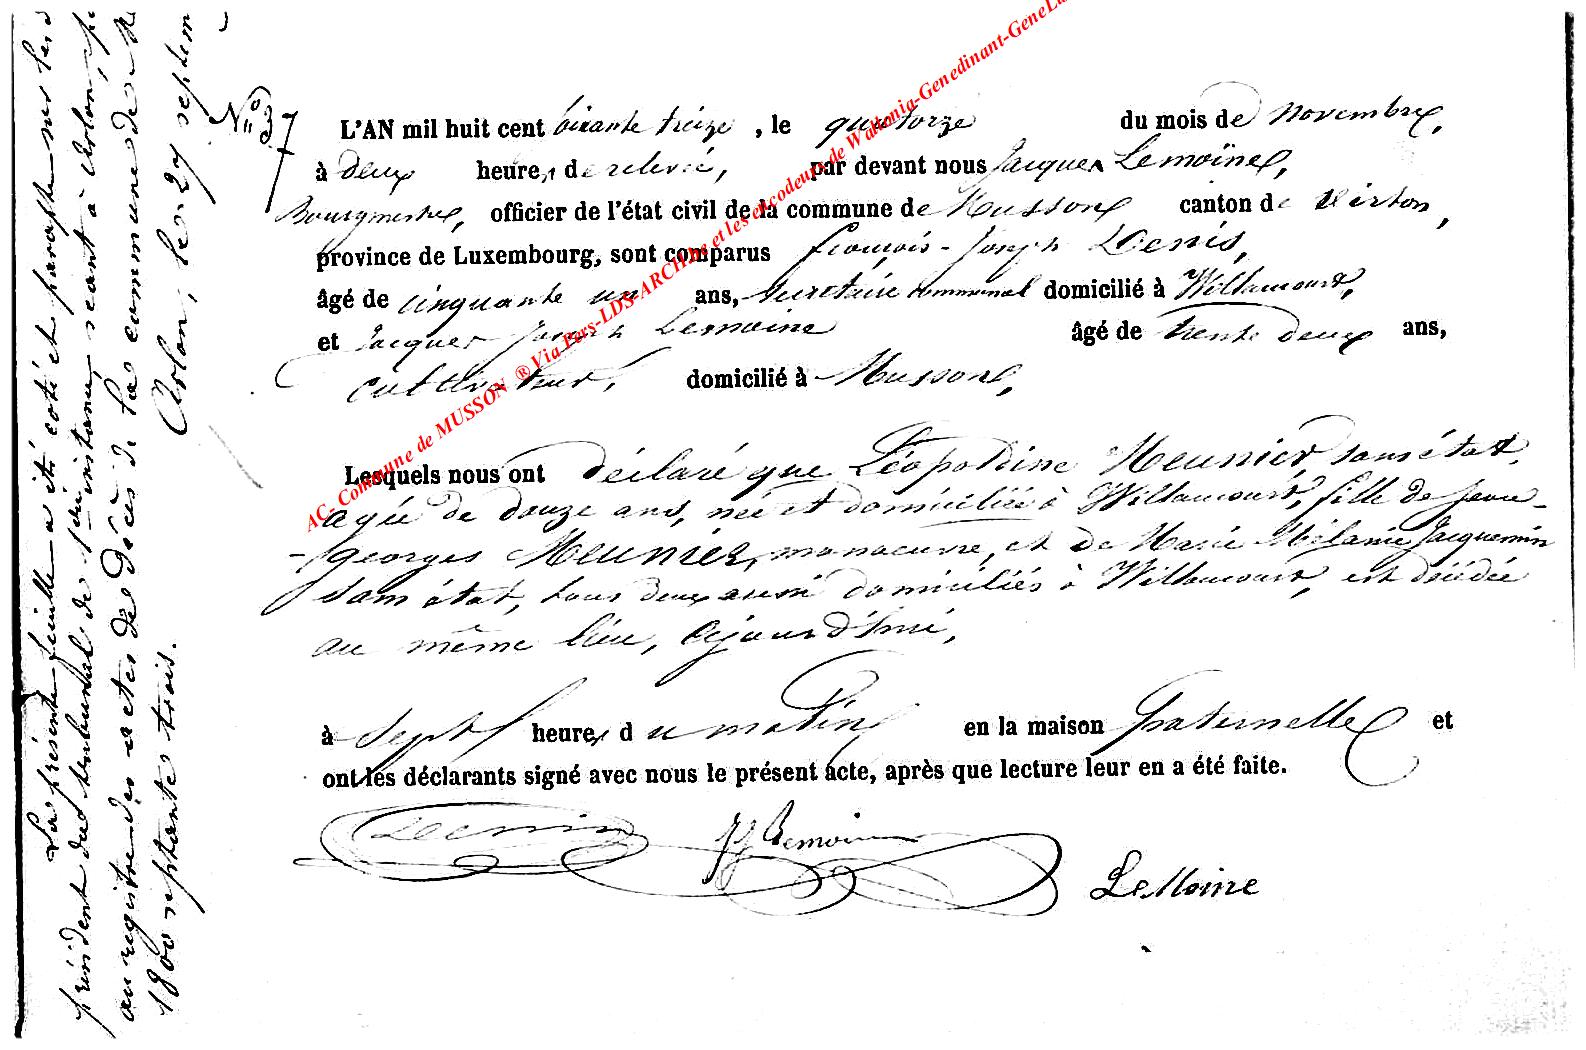 La présente feuille a été coté et paraphé par le
président du tribunal de 1ère instance séant à Arlon, p
au registre des actes de Décès de la commune de M
1800 septante trois. Arlon, le 27 septem
N° 37
L'AN mil huit cent soixante treize, le quatorze du mois de novembre,
à deux heures de relevée, par devant nous Jacques Lemoine,
Bourgmestre, officier de l'état civil de la commune de Musson canton de Virton,
province de Luxembourg, sont comparus françois-Joseph Denis,
âgé de cinquante un ans, secrétaire communal domicilié à Willancourt,
et Jacques Joseph Lemoine âgé de trente deux ans,
cultivateur, domicilié à Musson,
Lesquels nous ont déclaré que Léopoldine Meunier, sans état,
agée de douze ans, née et domiciliée à Willancourt, fille de jean-
-georges Meunier, manoeuvre, et de Marie Mélanie Jacquemin
sans état, tous deux aussi domiciliés à Willancourt, est décédée
au même lieu, cejourd'hui,
à sept heures du matin en la maison paternelle et
ont les déclarants signé avec nous le présent acte, après que lecture leur en a été faite.
Denis JJ Lemoine
LeMoine
AC- Commune de MUSSON ® Via Pers-LDS-ARCHive et les encodeurs de Wallonia-Genedinant-GeneLu